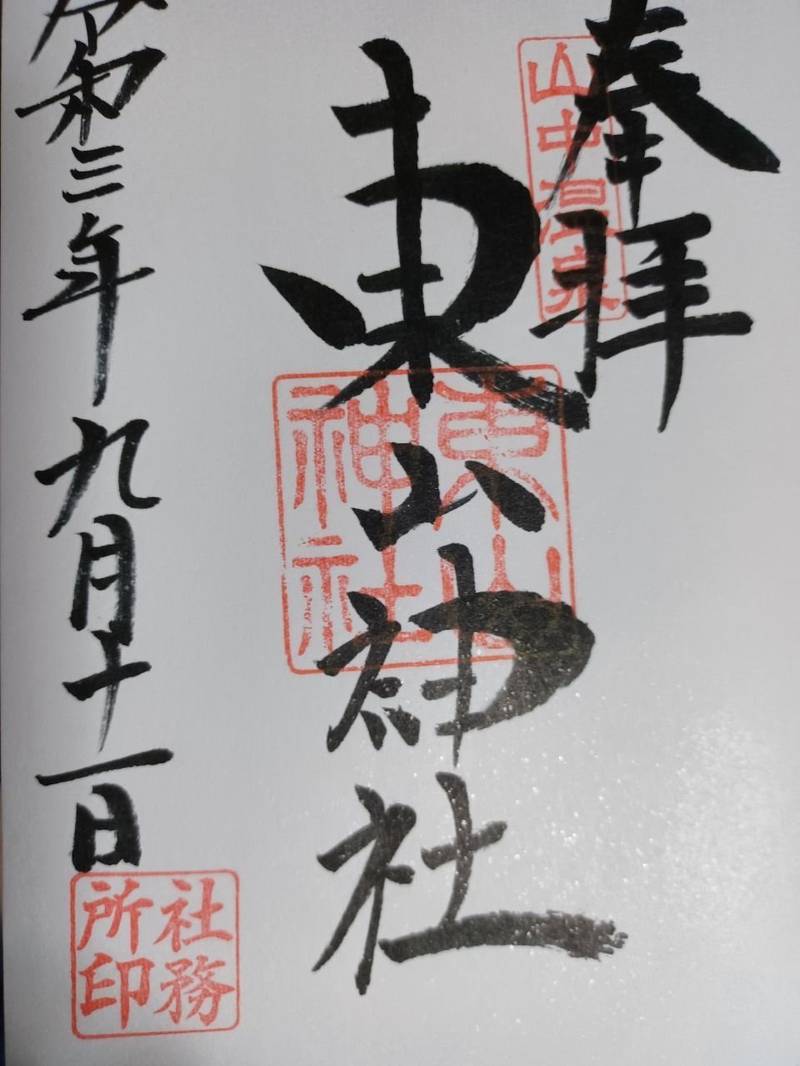 奉拝
山中温泉
東山神社
東山神社
令和三年九月十一日
社務所印